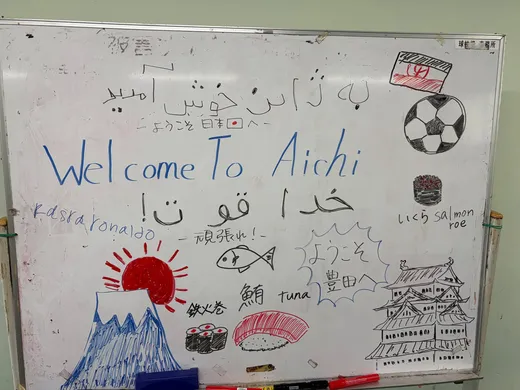 به ژاپن خوش آمید
-ようこそ 日本へ-
Welcome To Aichi
خدا قوت!
-頑張れ!-
Kasra ronaldo
いくら salmon roe
ようこそ
豊田へ
鉄火巻
鮪 tuna